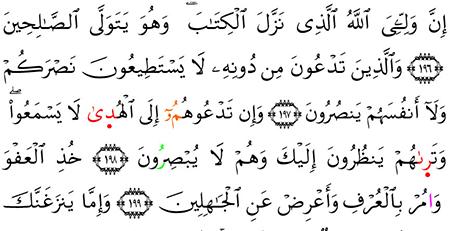 إِنَّ وَلِـِّۧىَ ٱللَّهُ ٱلَّذِى نَزَّلَ ٱلْكِتَـٰبَ ۖ وَهُوَ يَتَوَلَّى ٱلصَّـٰلِحِينَ
﴿١٩٦﴾ وَٱلَّذِينَ تَدْعُونَ مِن دُونِهِۦ لَا يَسْتَطِيعُونَ نَصْرَكُمْ
وَلَآ أَنفُسَهُمْ يَنصُرُونَ ﴿١٩٧﴾ وَإِن تَدْعُوهُمُۥٓ إِلَى ٱلْهُدِىٰ لَا يَسْمَعُوا۟ ۖ
وَتَرِىٰهُمْ يَنظُرُونَ إِلَيْكَ وَهُمْ لَا يُبْصِرُونَ ﴿١٩٨﴾ خُذِ ٱلْعَفْوَ
وَامُرْ بِٱلْعُرْفِ وَأَعْرِضْ عَنِ ٱلْجَـٰهِلِينَ ﴿١٩٩﴾ وَإِمَّا يَنزَغَنَّكَ